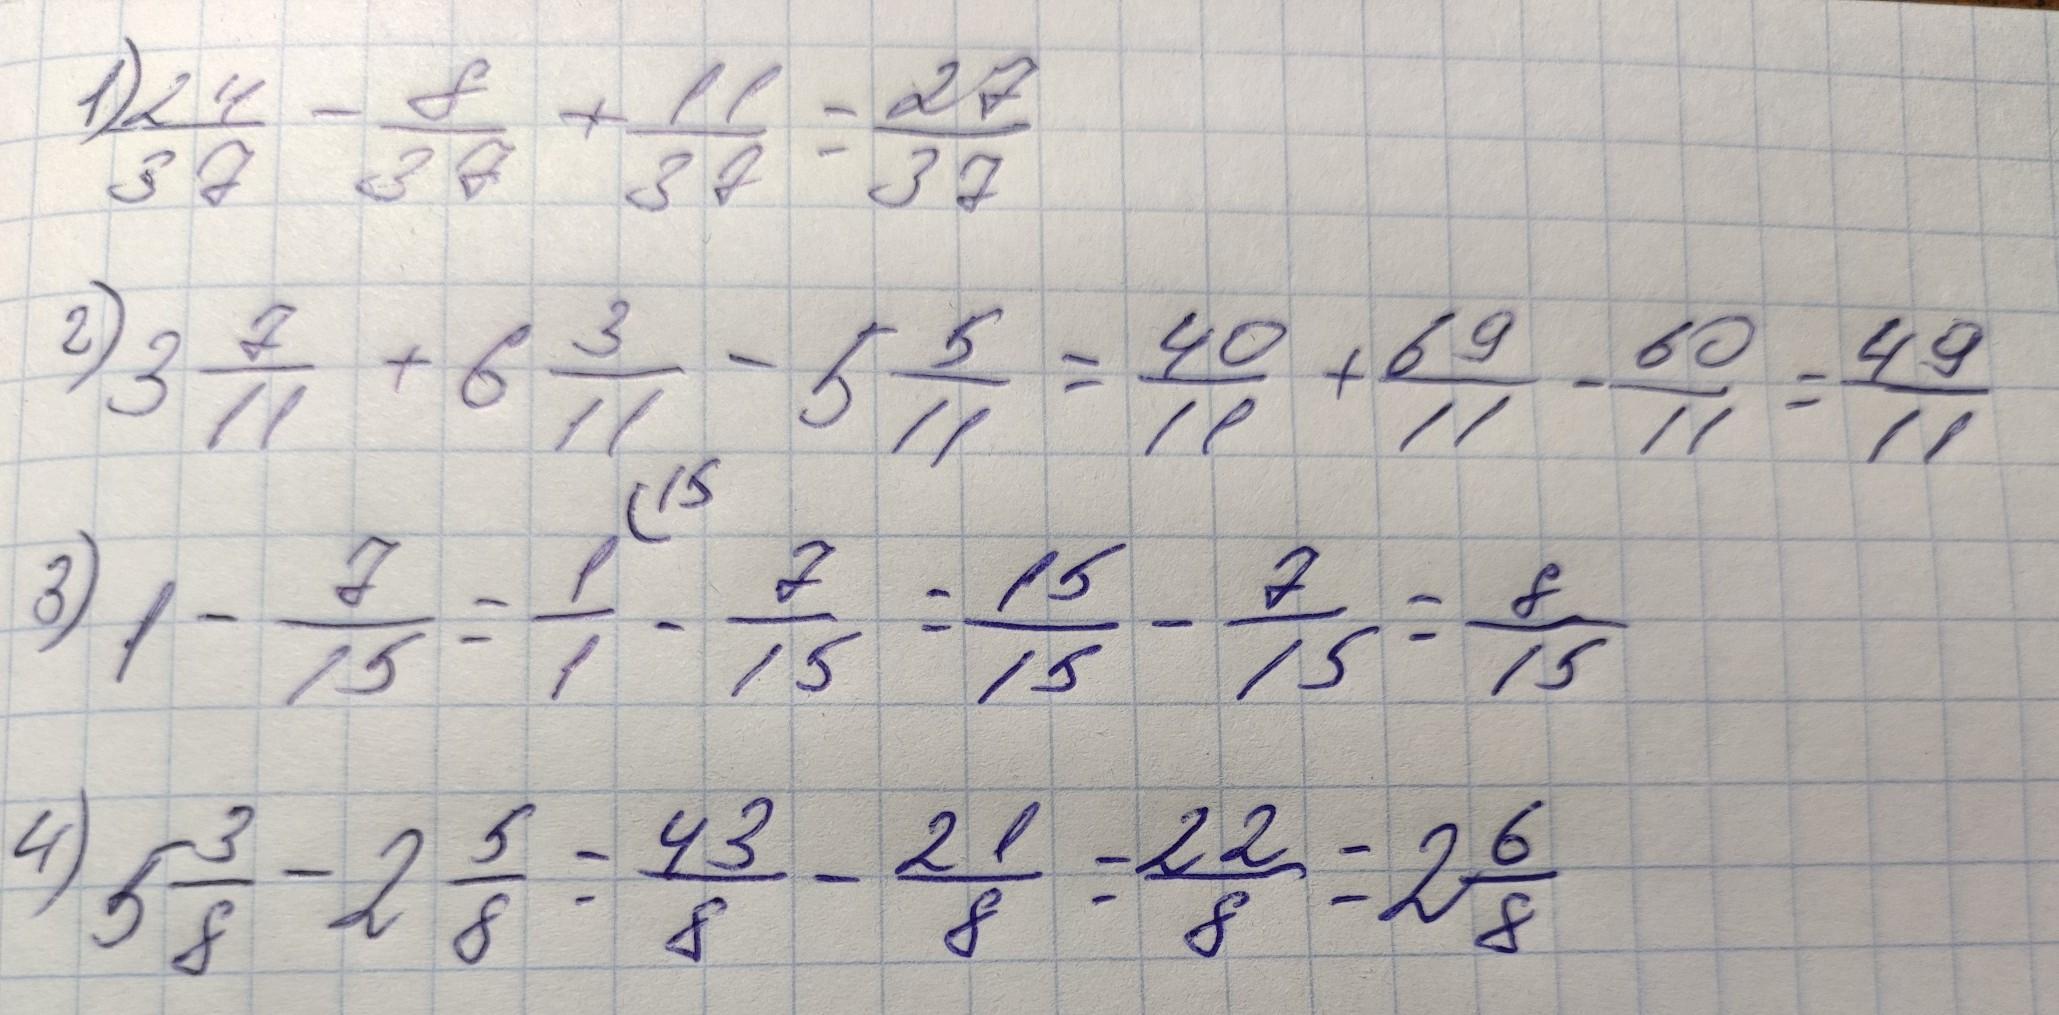 1) 24/37 - 8/37 + 11/37 = 27/37
2) 3 7/11 + 6 3/11 - 5 5/11 = 40/11 + 69/11 - 60/11 = 49/11
3) 1 - 7/15 = 1/1 (15 - 7/15 = 15/15 - 7/15 = 8/15
4) 5 3/8 - 2 5/8 = 43/8 - 21/8 = 22/8 = 2 6/8